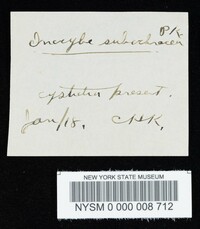 Inocybe subochracea Pk.
cystidia present.
Jan/18. CHK.
NEW YORK STATE MUSEUM
NYSM 0 000 008 712